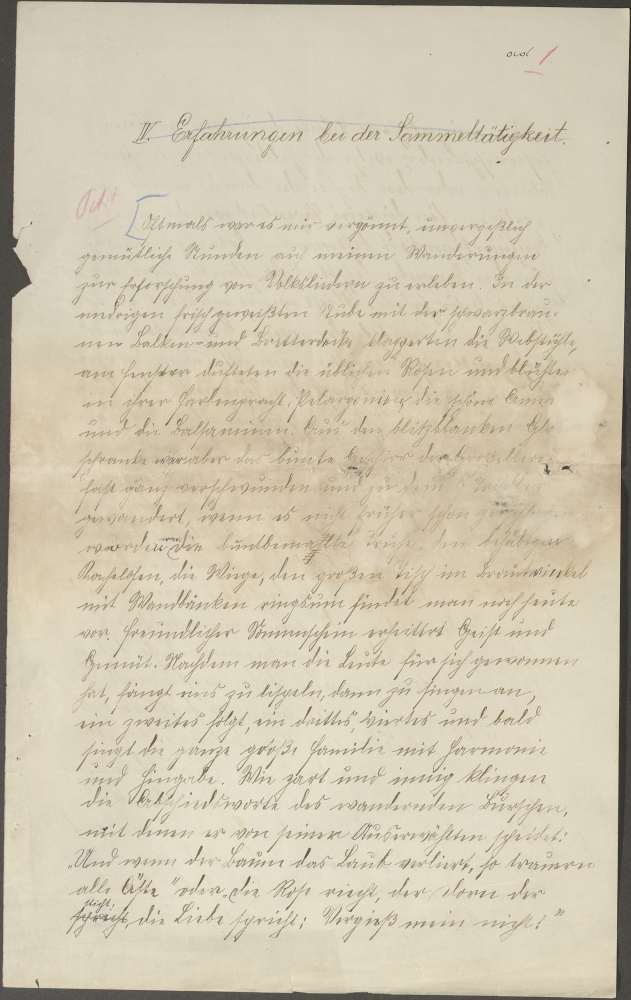 1
IV. Erfahrungen bei der Sammeltätigkeit.
Oftmals war es mir vergönnt, unvergeßlich
gemütliche Stunden auf meinen Wanderungen
zur Erforschung von Volksliedern zu erleben. In der
niedrigen frischgeweißten Stube mit der schwarzbrau-
nen Balken- und Bretterdecke klapperten die Webstühle,
am Fenster dufteten die üblichen Rosen und blühten
in ihrer Farbenpracht, Pelargonien, die schöne
und die Balsaminen. Aus dem blitzblanken
schranke war aber das bunte
fast ganz verschwunden und zu dem
gewandert, wenn es nicht früher schon
worden. Die buntbemalte Truhe, den
Kachelofen, die Wiege, den großen Tisch im Brautwinkel
mit Wandbänken ringsum findet man noch heute
vor. Freundlicher Sonnenschein erheitert Geist und
Gemüt. Nachdem man die Leute für sich gewonnen
hat, fängt eins zu lispeln, dann zu singen an,
ein zweites folgt, ein drittes, viertes und bald
singt die ganze große Familie mit Harmonie
und Hingabe. Wie zart und innig klingen
die Abschiedsworte des wandernden Burschen,
mit denen er von seiner Auserwählten scheidet:
„Und wenn der Baum das Laub verliert, so trauern
alle Äste" oder „die Rose riecht, der Dorn der
sticht, die Liebe spricht: Vergieß mein nicht!"